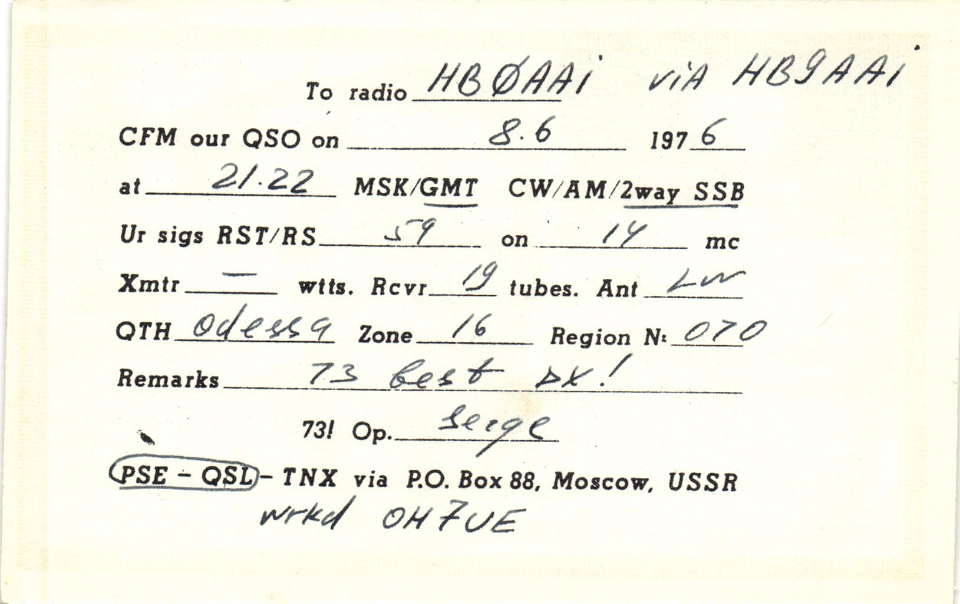 To radio HBØAAi via HB9AAi
CFM our QSO on 8.6 1976
at 21.22 MSK/GMT CW/AM/2way SSB
Ur sigs RST/RS 59 on 14 mc
Xmtr — wtts. Rcvr 19 tubes. Ant LW
QTH Odessa Zone 16 Region N: 070
Remarks 73 best DX!
73! Op. Serge
PSE – QSL – TNX via P.O. Box 88, Moscow, USSR
wrkd OH7UE